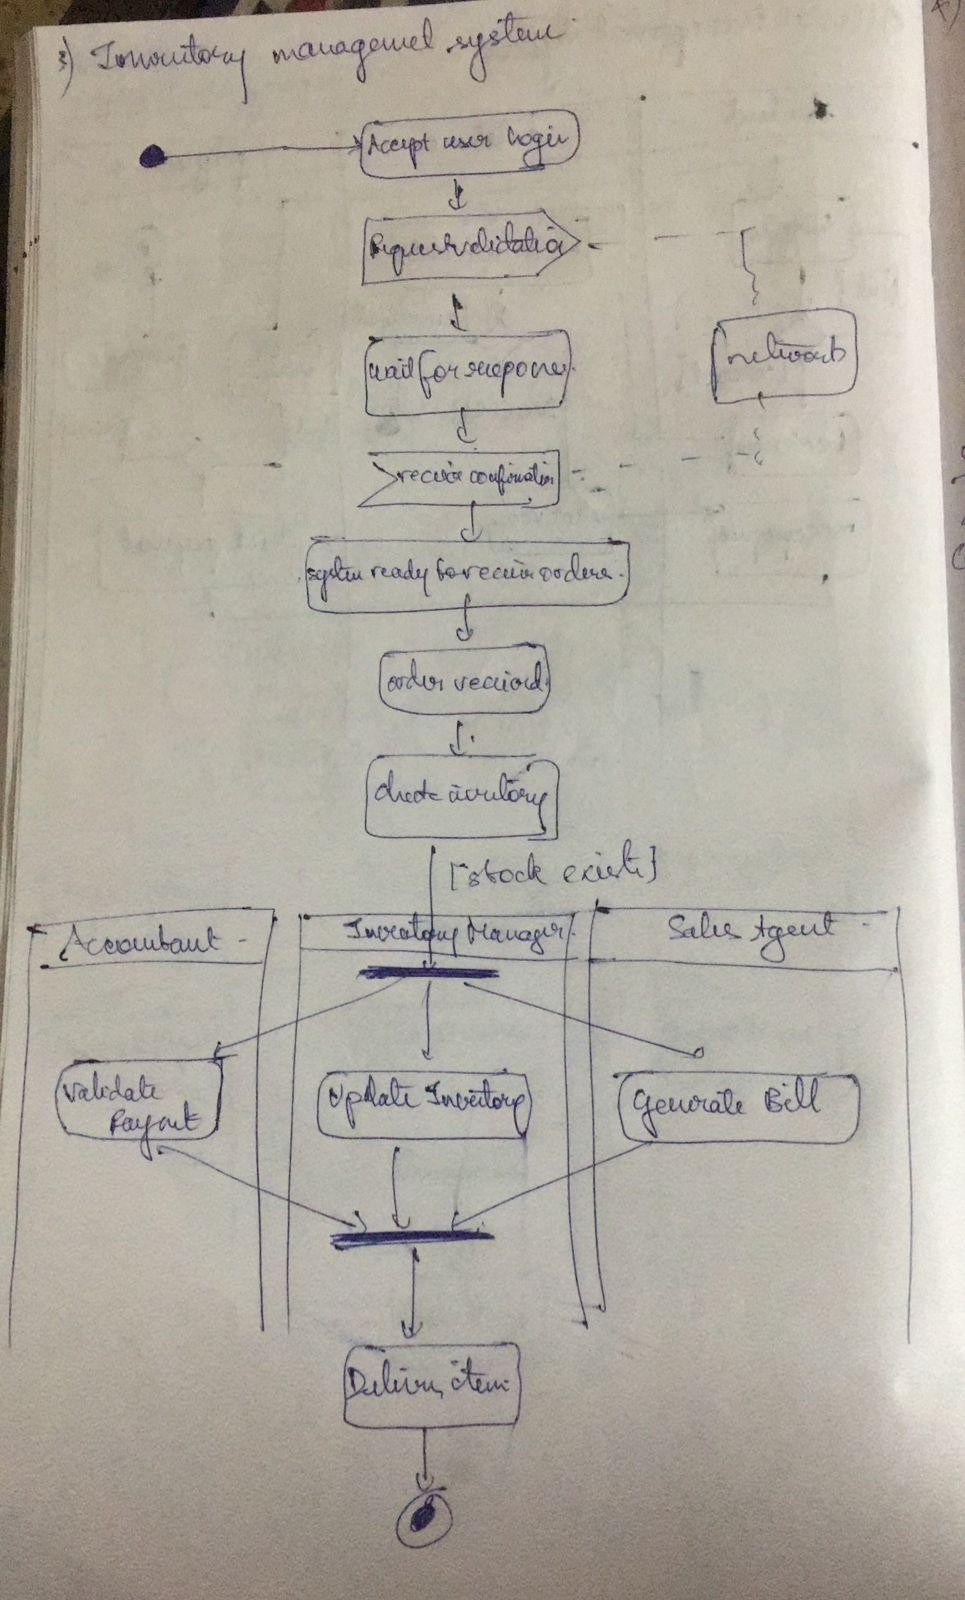 3) Inventory managemel system
Accept user login
Request validatio
wait for response.
receive confirmation
network
system ready to receive orders.
order received
check invntory
[stock exist]
Accountant -
Inventory Manager.
Sales Agent -
Validate
Payout
Update Inventory
Generate Bill
Deliver item